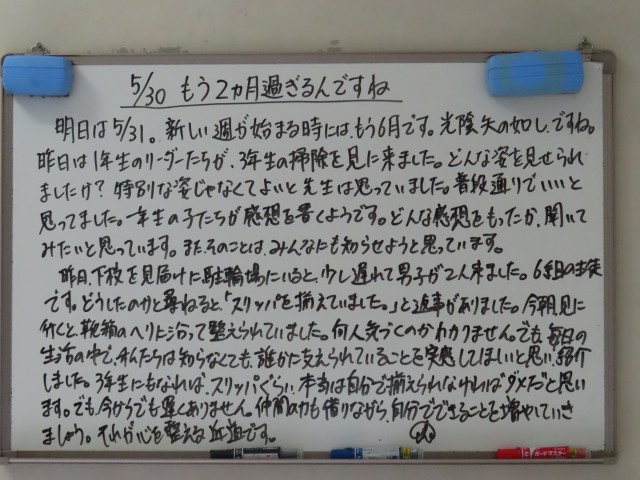 5/30 もう2ヵ月過ぎるんですね
明日は5/31。新しい週が始まる時には、もう6月です。光陰矢の如し、ですね。
昨日は1年生のリーダーたちが、3年生の掃除を見に来ました。どんな姿を見せられ
ましたけ？特別な姿じゃなくてよいと先生は思っていました。普段通りでいいと
思ってました。一年生の子たちが感想を書くようです。どんな感想をもったか、聞いて
みたいと思っています。また、そのことは、みんなにも知らせようと思っています。
昨日、下校を見届けに駐輪場にいると、少し遅れて男子が2人来ました。6組の生徒
です。どうしたのかと尋ねると、「スリッパを揃えていました。」と返事がありました。今朝見に
行くと、靴箱のヘリに沿って整えられていました。何人気づくのかわかりません。でも、毎日の
生活の中で、みんなは知らなくても、誰かに支えられていることを実感してほしいと思い、紹介
しました。3年生にもなれば、スリッパぐらい、本当は自分で揃えられなければ“ダメだ”と思い
ます。でも、今からでも遅くありません。仲間の力も借りながら、自分でできることを増やしていき
ましょう。それが心を整える近道です。
ボードマスター